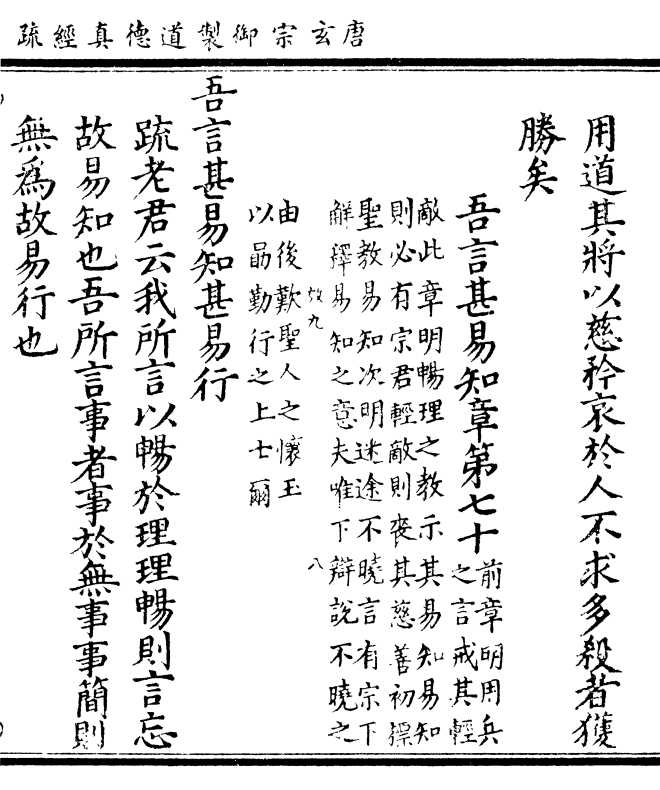 唐玄宗御製道德真經疏
用道其將以慈矜哀於人不求多殺者獲
勝矣
吾言甚易知章第七十
前章明用兵
之言戒其輕
敵此章明暢理之教示其易知易知
則必有宗君輕敵則喪其慈善初摽
聖教易知次明迷途不曉言有宗下
解釋易知之意夫唯下辯說不曉之
效九
八
由後歎聖人之懷玉
以勗勤行之上士爾
吾言甚易知甚易行
疏老君云我所言以暢於理理暢則言忘
故易知也吾所言事者事於無事事簡則
無爲故易行也